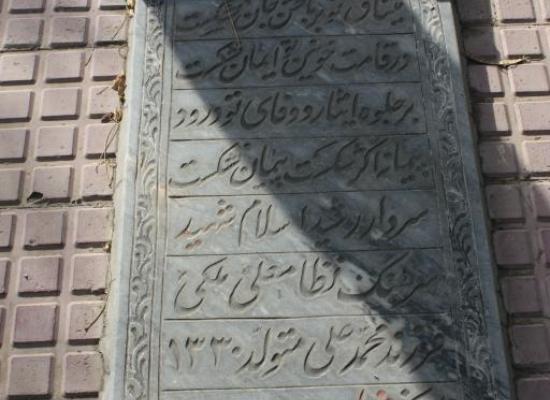 میثاق تو بر باختن جان نشکست
در قامت خونین تو ایمان نشکست
بر جلوه ایثار و وفای تو درود
پیمانه اگر شکست پیمان نشکست
سردار رشید اسلام شهید
سرهنگ نظامعلی ملکی
فرزند محمد علی متولد ۱۳۳۰